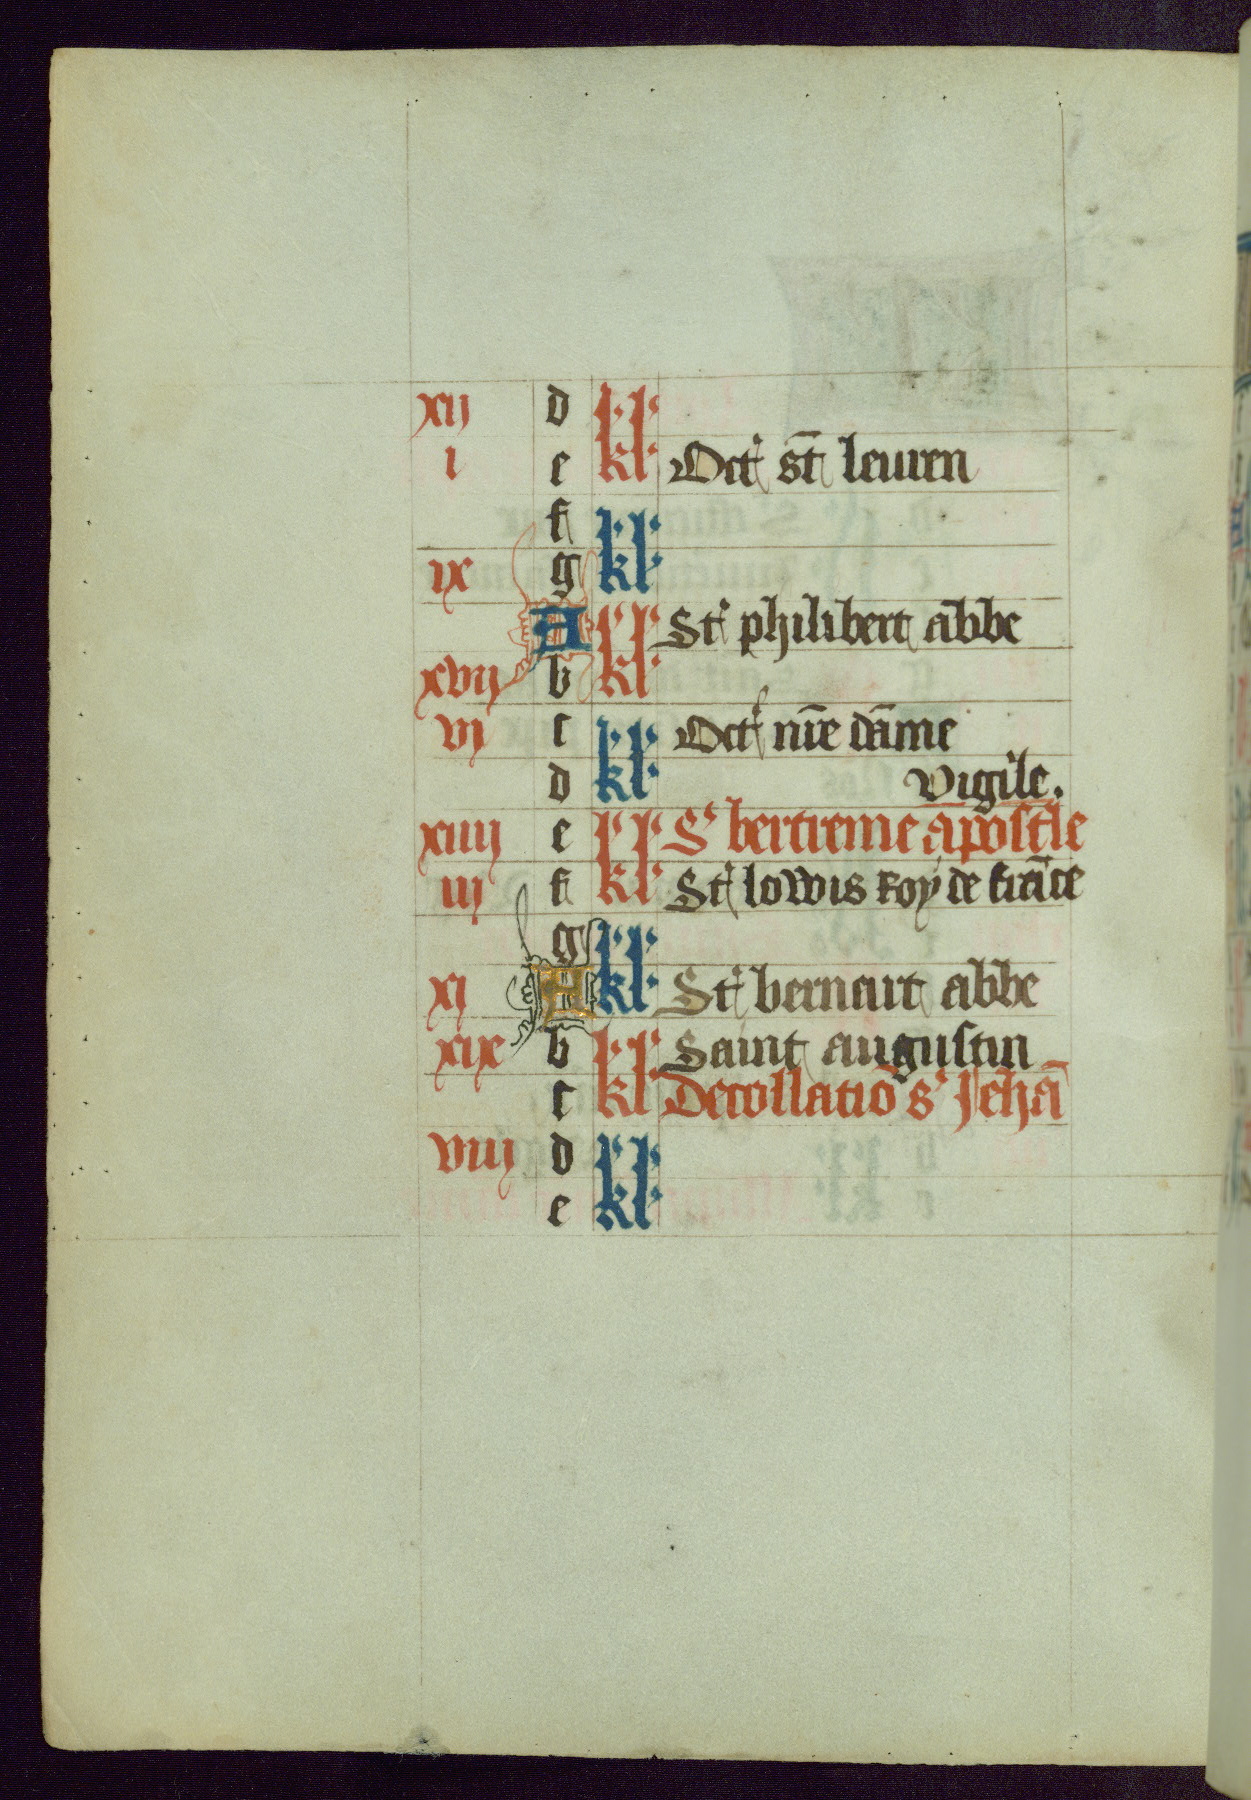 xij d kl
i e kl Oct' st leuren
f kl
ix g kl
A kl St' philibert abbe
xvij b kl
vj c kl Oct' nre dame
d kl vigile.
xiiij e kl S' bertreme apostle
iij f kl St' lowis roy de france
g kl
xj A kl St' bernart abbe
xix b kl Saint augustin
c kl Decollatio s' Jeha
viij d kl
e kl